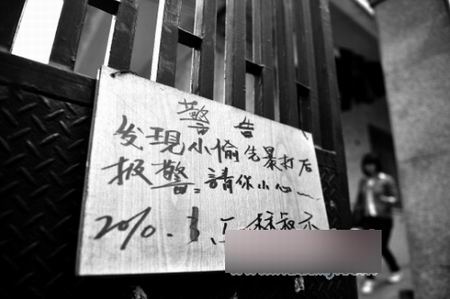 警告
发現小偷先暴打后
报警。請你小心
2010.